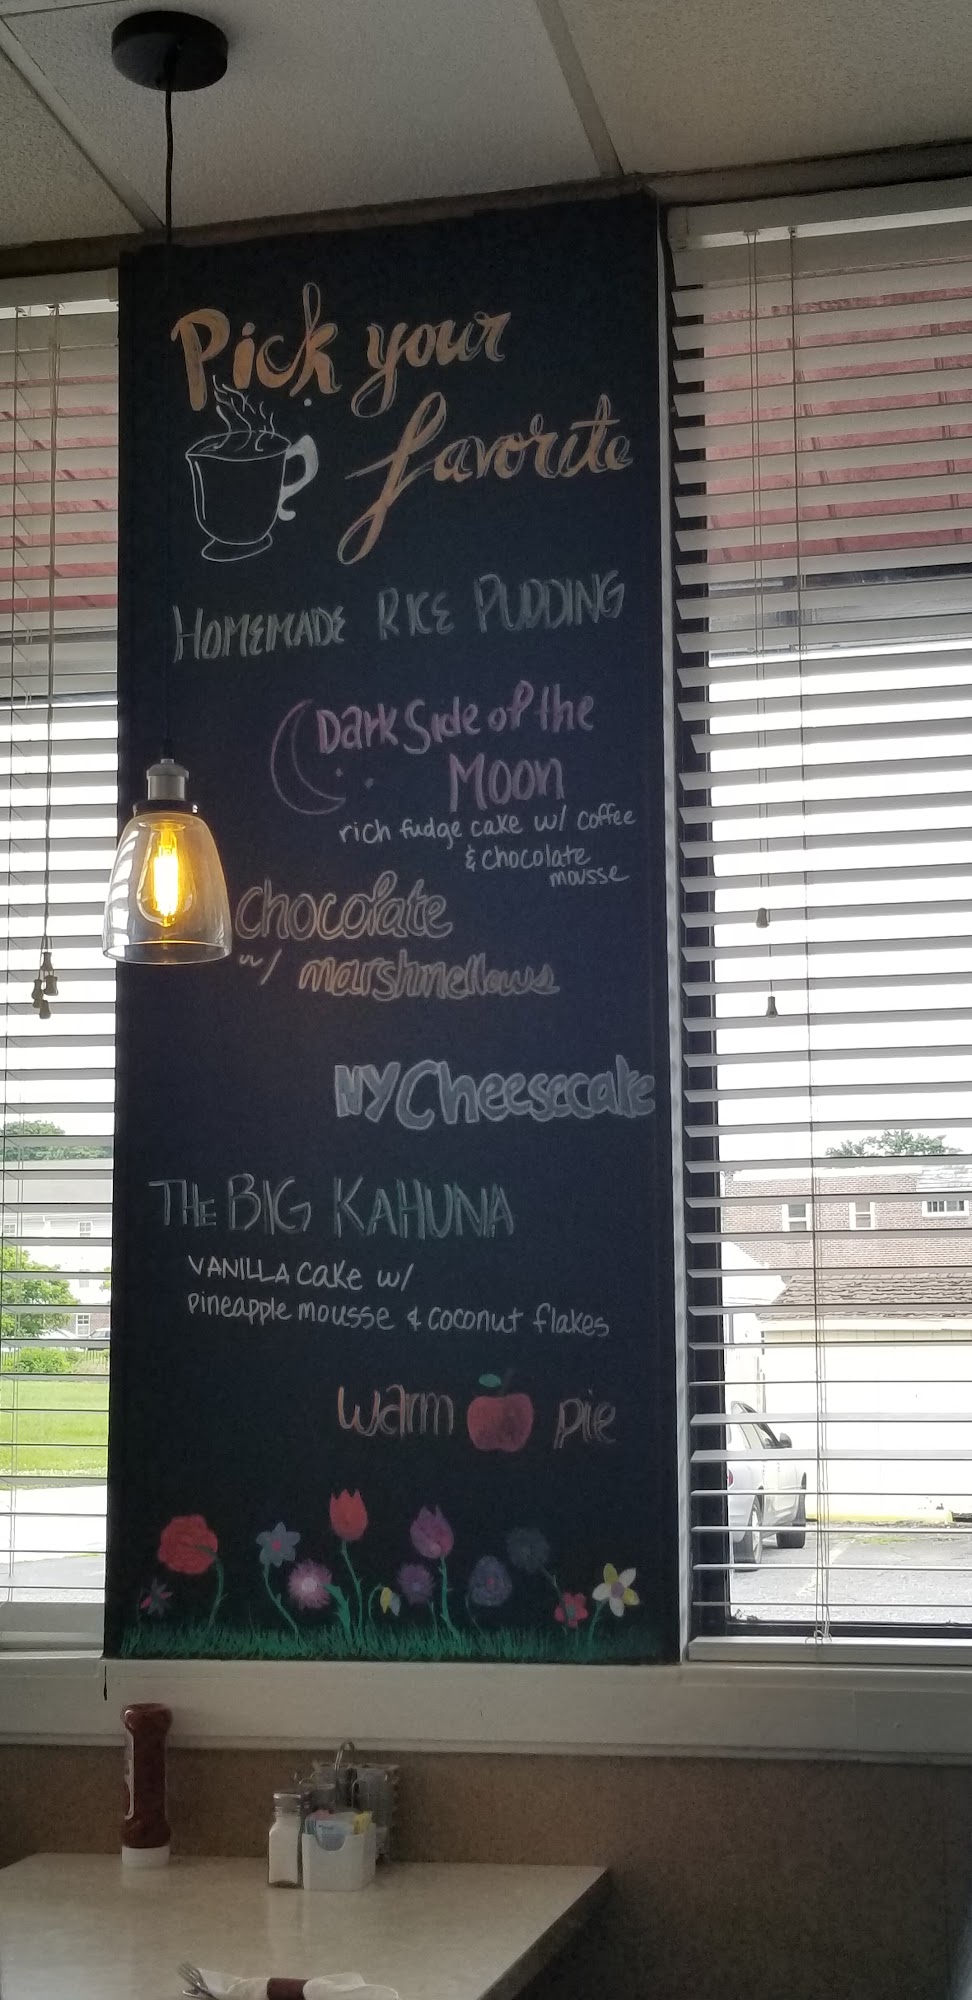 Pick your
favorite
HOMEMADE RICE PUDDING
Dark Side of the
Moon
rich fudge cake w/ coffee
& chocolate
mousse
chocolate
w/ marshmellows
NY Cheesecake
THE BIG KAHUNA
VANILLA cake w/
pineapple mousse & coconut flakes
warm pie